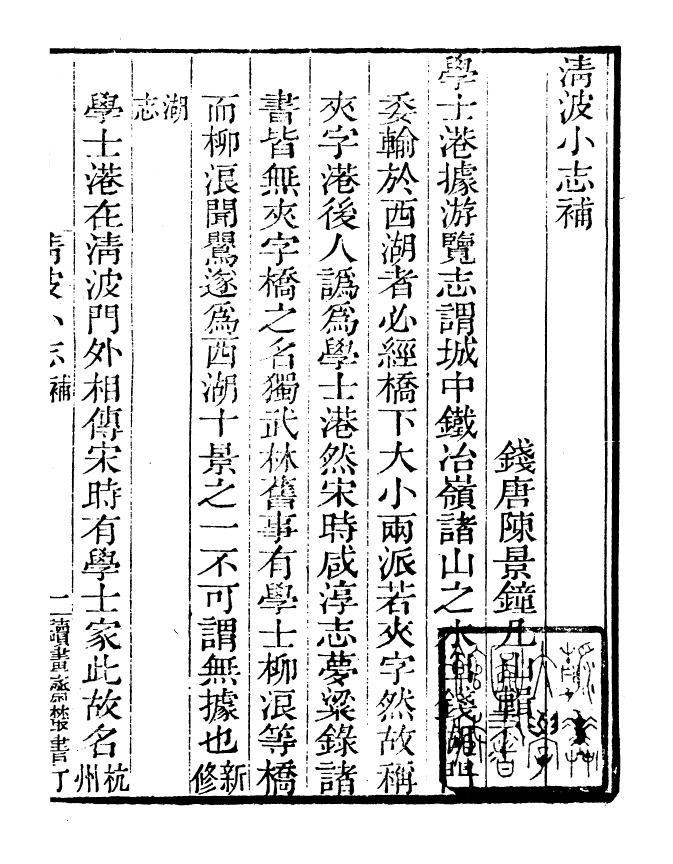 清波小志補
錢唐陳景鐘几山輯
學士港據游覽志謂城中鐵冶嶺諸山之水由錢湖門
委輸於西湖者必經橋下大小兩派若夾字然故稱
夾字港後人譌爲學士港然宋時咸淳志夢粱錄諸
書皆無夾字橋之名獨武林舊事有學士柳浪等橋
而柳浪聞鶯遂爲西湖十景之一不可謂無據也新修
湖志
學士港在清波門外相傳宋時有學士家此故名杭州
清波小志補
一 讀書齋叢書 丁